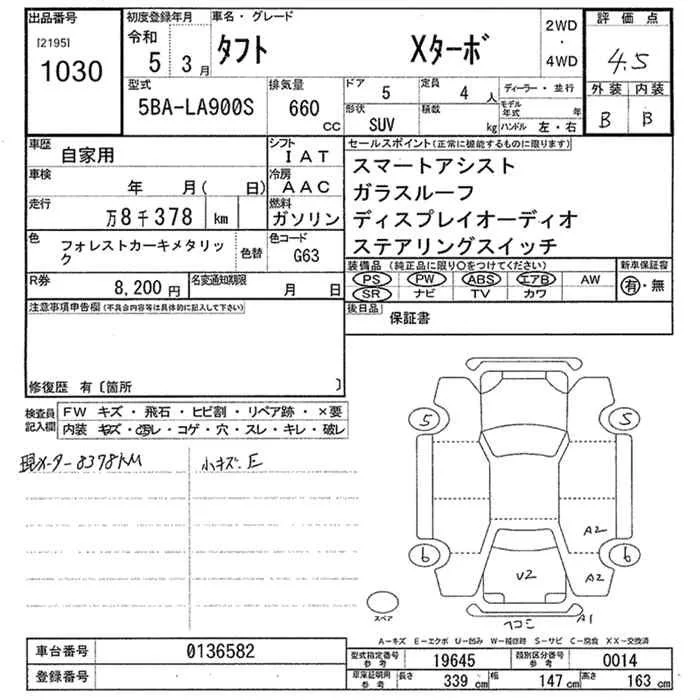 出品番号
[2195]
1030
初度登録年月
令和
5 3月
車名・グレード
タフト Xターボ
2WD
・
4WD
評価点
4.5
外装 内装
B B
型式
5BA-LA900S
排気量
660
CC
ドア
5
定員
4人
形状
SUV
積数
kg
ディーラー・並行
モデル年式 年
ハンドル 左・右
車歴
自家用
シフト
IAT
車検
年 月( 日)
冷房
AAC
走行
万8千378 km
燃料
ガソリン
色
フォレストカーキメタリック
色替
色コード
G63
R券
8,200円
名変通知期限
月 日
セールスポイント(正常に機能するものに限ります)
スマートアシスト
ガラスルーフ
ディスプレイオーディオ
ステアリングスイッチ
装備品(純正品に限り○をつけてください)
PS PW ABS エアB AW
SR ナビ TV カワ
新車保証書
有・無
後日品
保証書
注意事項申告欄(不具合内容等は具体的に記入して下さい)
修復歴 有〔箇所 〕
検査員記入欄
FW キズ・飛石・ヒビ割・リペア跡・×要
内装 キズ・汚レ・コゲ・穴・スレ・キレ・破レ
現メーター8378KM
小キズ、E
5 5
A2
6 6
A2
U2
ヘコミ A1
スペア
A-キズ E-エクボ U-凹み W-補修跡 S-サビ C-腐食 XX-交換済
車台番号
0136582
登録番号
型式指定番号
参考
19645
類別区分番号
参考
0014
車庫証明用
参考
長さ 339 cm
幅 147 cm
高さ 163 cm